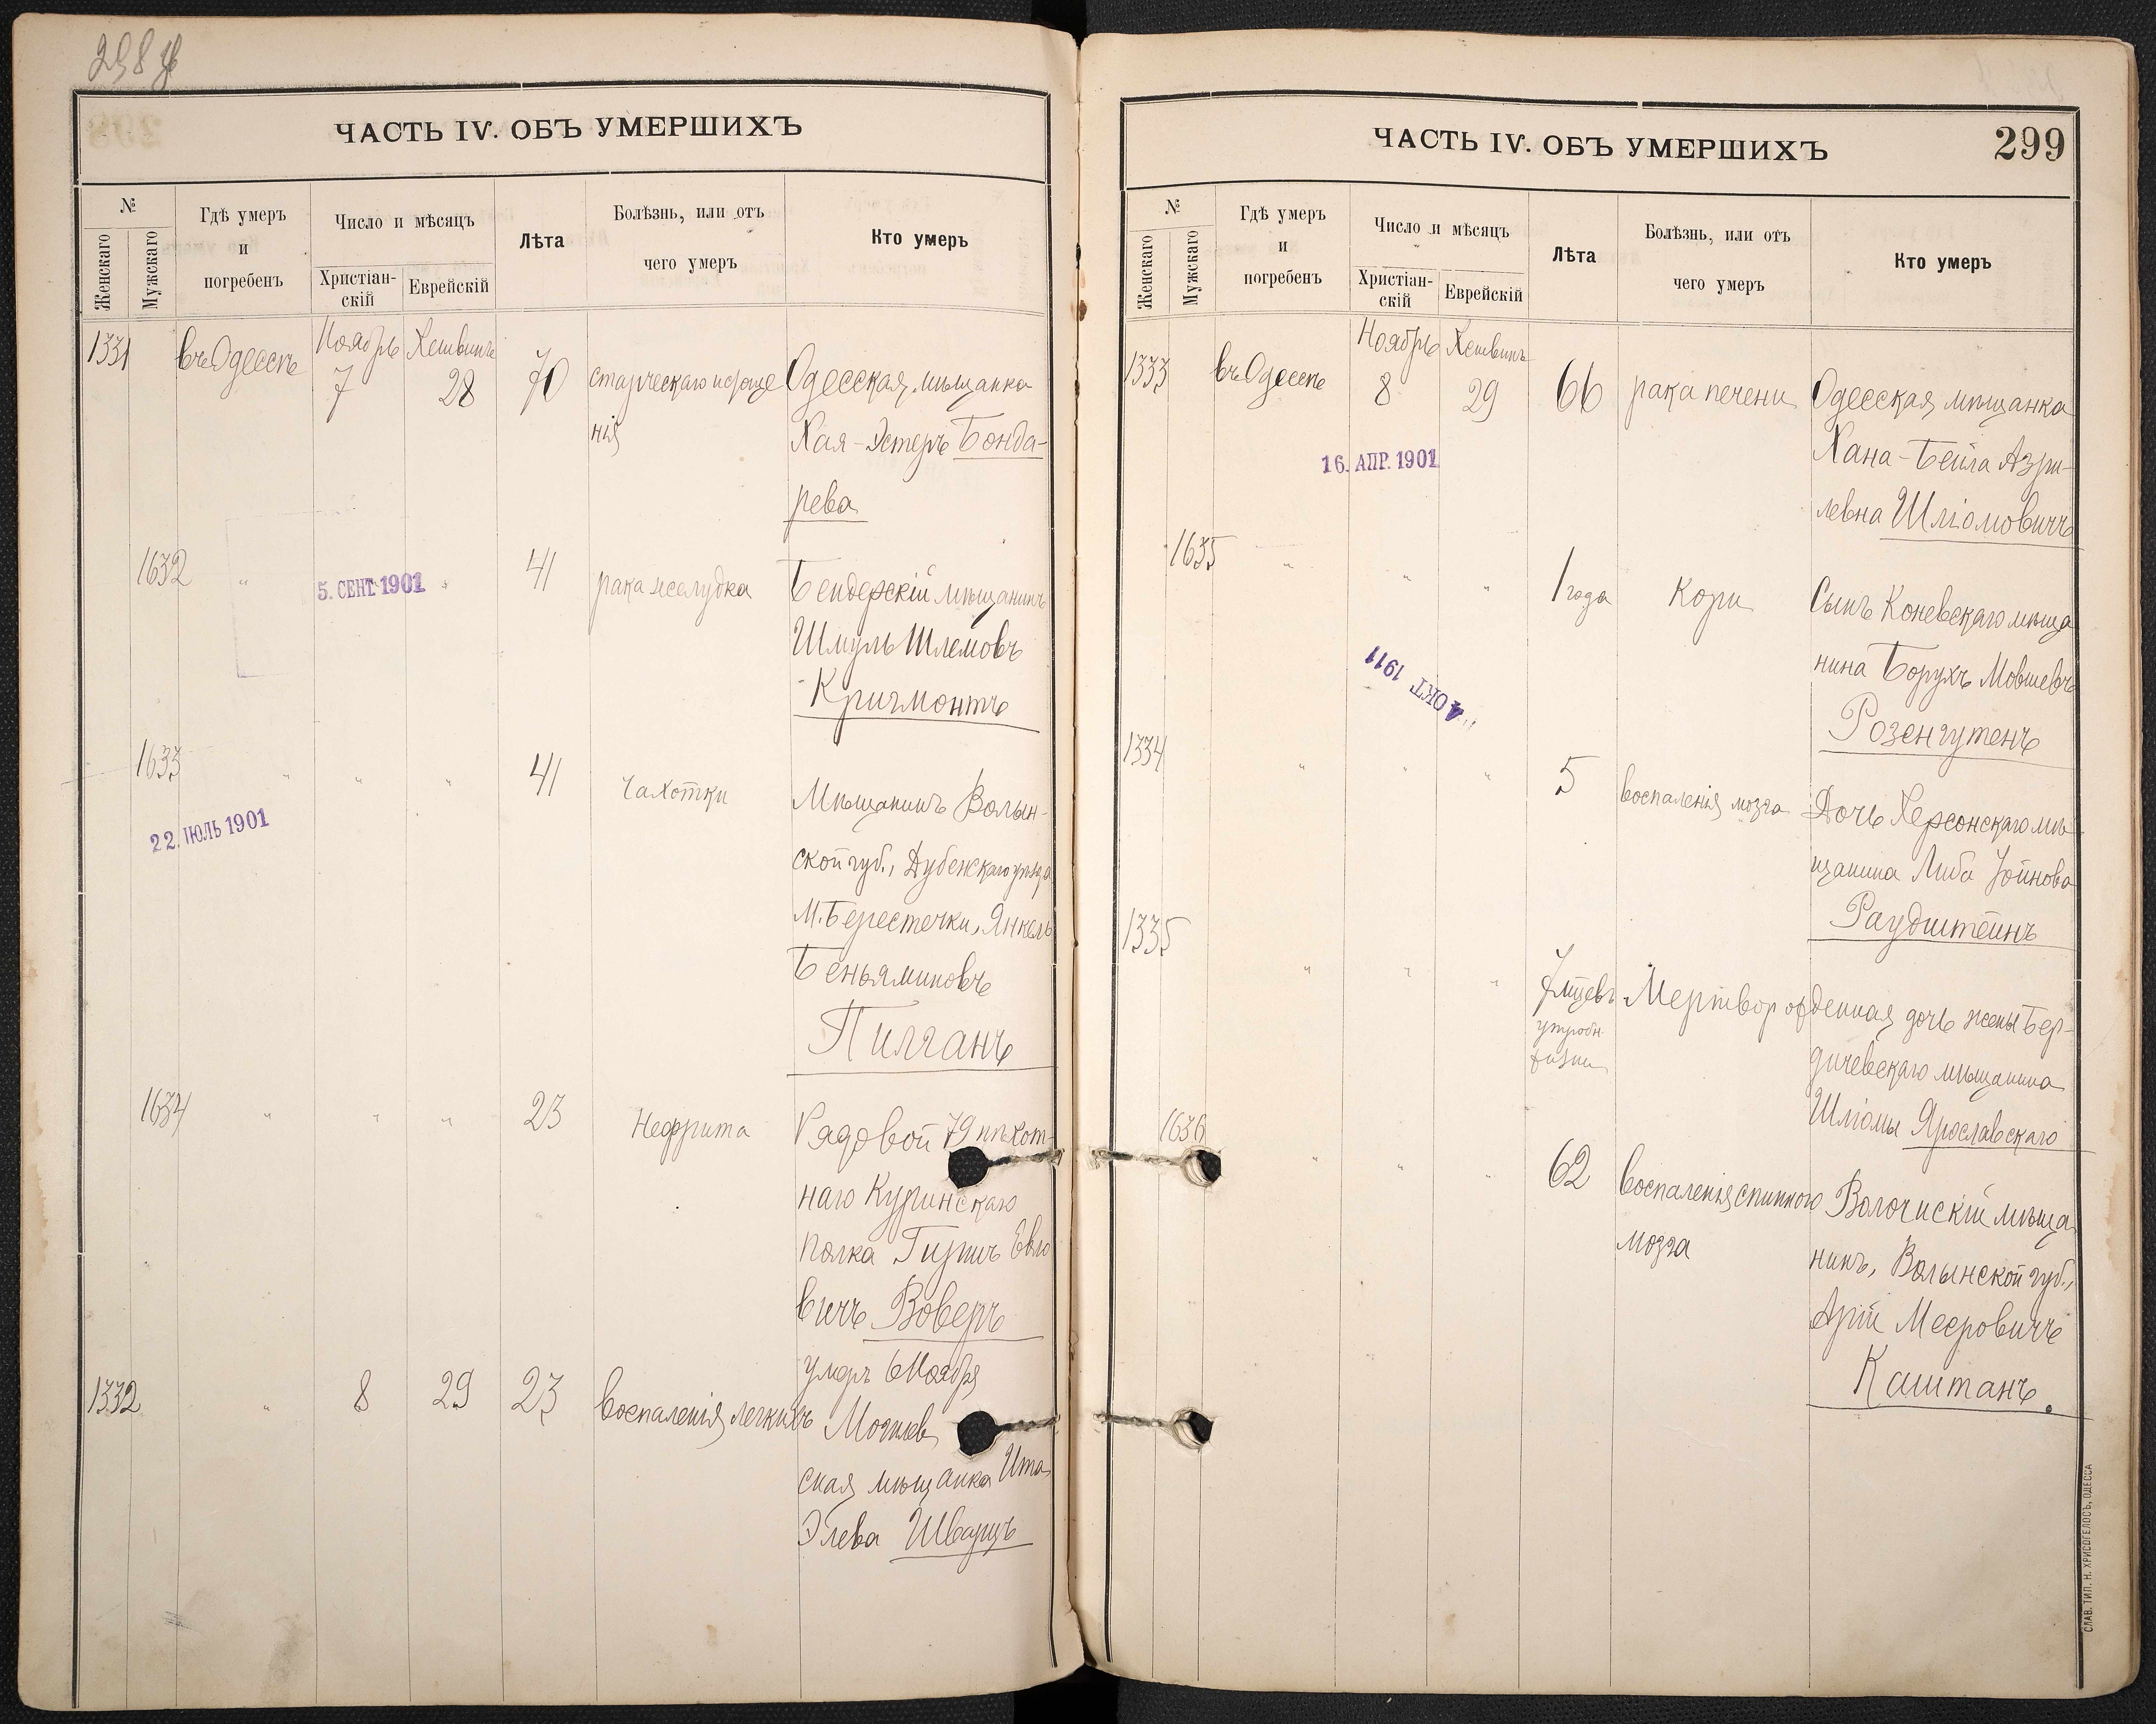 298
ЧАСТЬ IV. ОБЪ УМЕРШИХЪ
№
Женскаго
Мужскаго
Гдѣ умеръ
и
погребенъ
Число и мѣсяцъ
Христіан-
скій
Еврейскій
Лѣта
Болѣзнь, или отъ
чего умеръ
Кто умеръ
1331 въ Одессѣ Ноябрь 7 Хешвинъ 28 70 старческаго истоще
нія
Одесская мѣщанка
Хая-Эстеръ Бонда-
рева
1632 " 5. СЕНТ. 1901 " 41 рака желудка Бендерскій мѣщанинъ
Шмуль Шлемовъ
Кригмонтъ
1633 " " " 41 чахотки Мѣщанинъ Волын-
22. ІЮЛЬ 1901
ской губ., Дубенскаго уѣзда
М. Берестечки, Янкель
Беньяминовъ
Пилганъ
1634 " " " 23 Нефрита Рядовой 79 пѣхот-
наго Куринскаго
полка
вичъ Воверъ
умеръ 6 Ноября
1332 " 8 29 23 воспаленія легкихъ Могилев
ская мѣщанка Ита
Элева Шварцъ
ЧАСТЬ IV. ОБЪ УМЕРШИХЪ
299
№
Женскаго
Мужскаго
Гдѣ умеръ
и
погребенъ
Число и мѣсяцъ
Христіан-
скій
Еврейскій
Лѣта
Болѣзнь, или отъ
чего умеръ
Кто умеръ
1333 въ Одессѣ Ноябрь 8 Хешвинъ 29 66 рака печени Одесская мѣщанка
16. АПР. 1901
Хана-Бейла Азри-
левна Шліомовичъ
1635 " " " 1 года Кори Сынъ Коневскаго мѣща
нина Борухъ Мовшевъ
4 ОКТ 1911
Розенгутенъ
1334 " " " 5 воспаленія мозга Дочь Херсонскаго мѣ
щанина Либа Іойнова
Раудштейнъ
1335 " " " 7 мѣцевъ
утробн
жизни
Мертворожденная дочь жены Бер-
дичевскаго мѣщанина
Шліомы Ярославскаго
1636 " " " 62 воспаленія спинного
мозга
Волочискій мѣща
нинъ, Волынской губ.,
Арій Мееровичъ
Каштанъ.
СЛАВ. ТИП. Н. ХРИСОГЕЛОСЪ, ОДЕССА